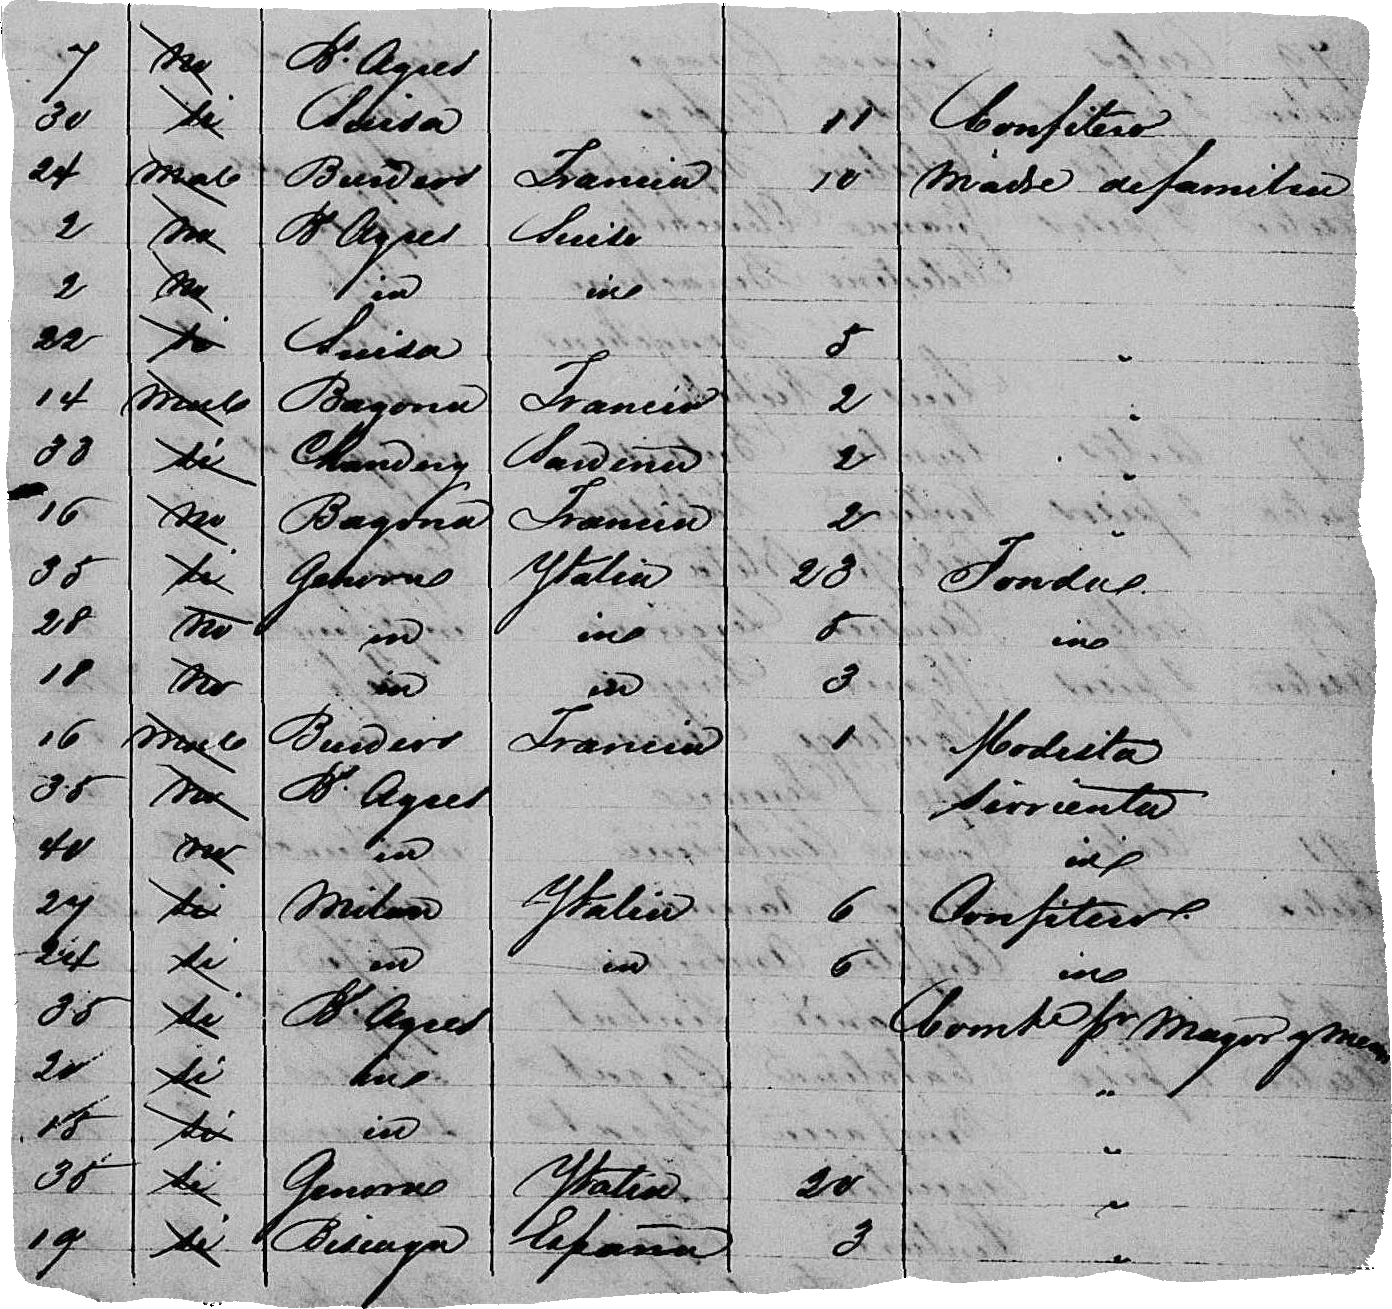 7 no Bs. Ayres
30 si Suisa 11 Confitero
24 Malo Burdeos Francia 10 Madre de familia
2 no Bs Ayres Suiso
2 no id id
22 si Suisa 5 "
14 Malo Bayona Francia 2 "
33 si Chambery Sardeña 2 "
16 no Bayona Francia 2 "
35 si Genova Ytalia 23 Fonda
28 no id id 5 id
18 no id id 3
16 Malo Burdeos Francia 1 Modista
35 no Bs. Ayres Sirvienta
40 no id id
27 si Milan Ytalia 6 Confitero
24 si id id 6 id
35 si Bs. Ayres Comte pr Mayor y men
20 si id "
15 si id "
35 si Genova Ytalia 20 "
19 si Biscaya España 3 "